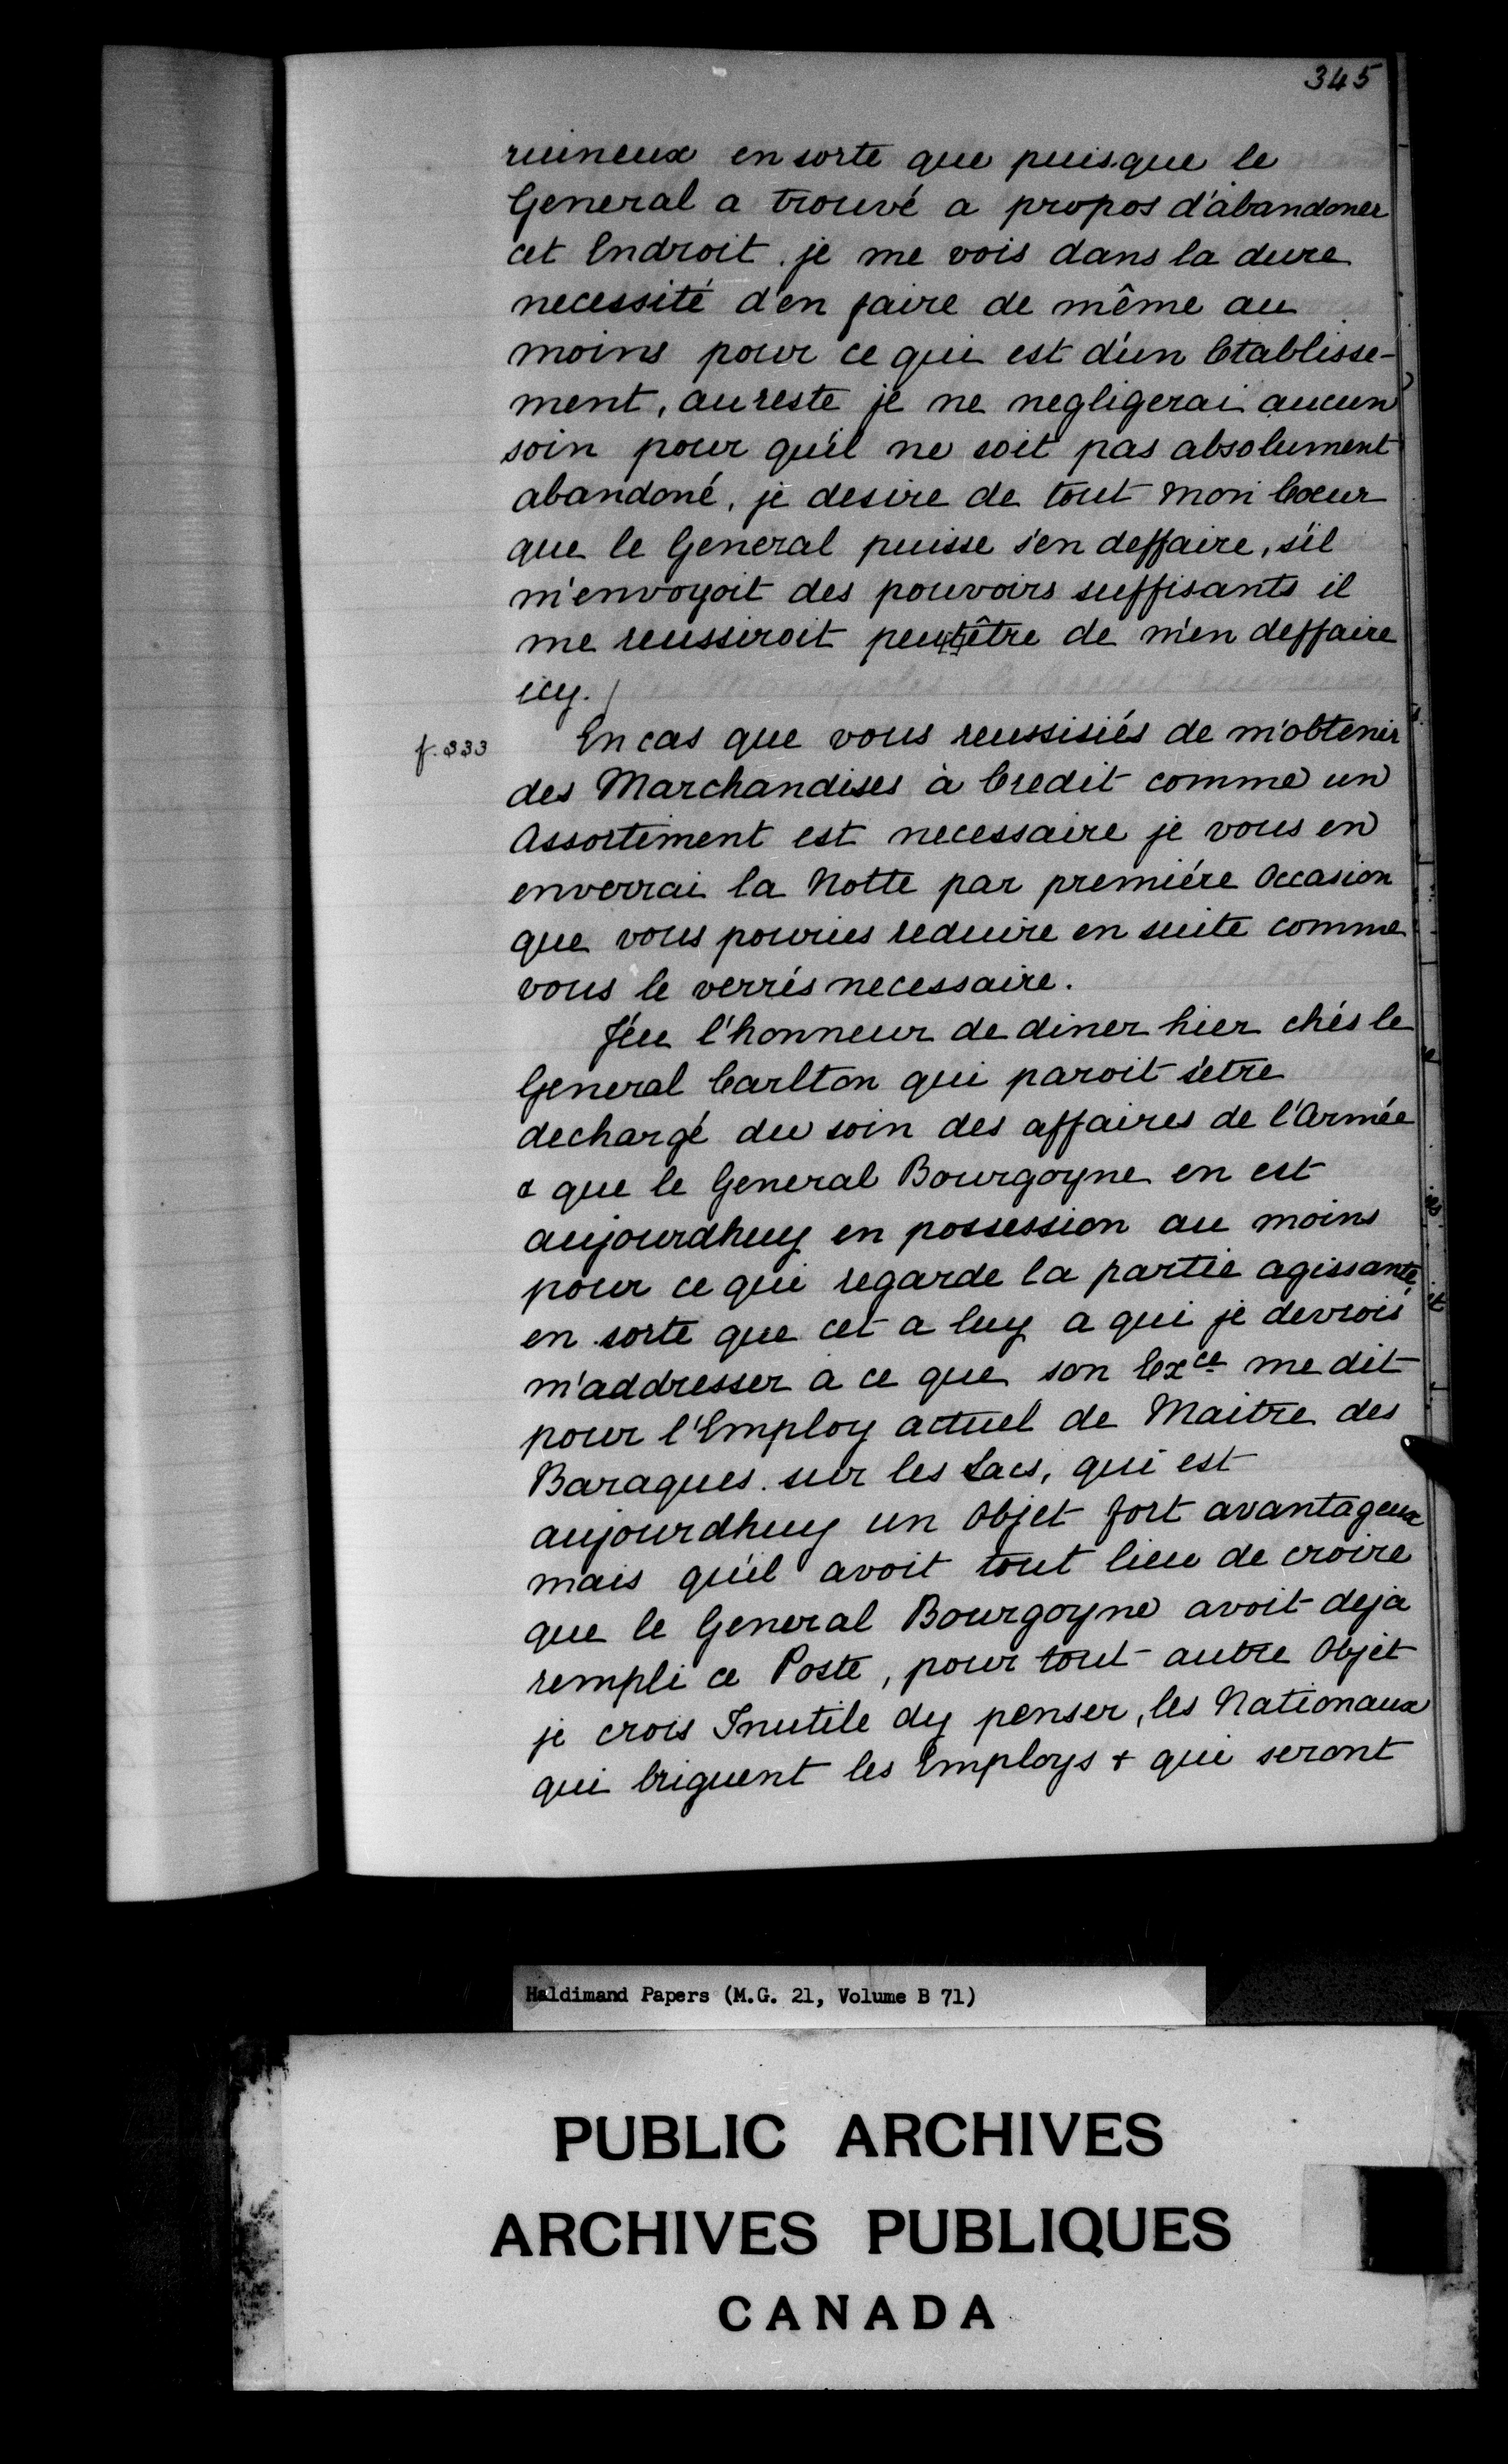 345
ruineux en sorte que puisque le
General a trouvé a propos d'abandoner
cet Endroit. je me vois dans la dure
necessité d'en faire de même au
moins pour ce qui est d'un Etablisse-
ment, au reste je ne negligerai aucun
soin pour qu'il ne soit pas absolument
abandoné, je desire de tout mon Coeur
que le General puisse s'en deffaire, s'il
m'envoyoit des pouvoirs suffisants il
me reussiroit peutêtre de m'en deffaire
icy. /
f. 333 En cas que vous reussisiés de m'obtenir
des Marchandises à Credit comme un
Assortiment est necessaire je vous en
enverrai la Notte par première Occasion
que vous pouries reduire en suite comme
vous le verrés necessaire.
J'eu l'honneur de diner hier chés le
General Carlton qui paroit s'etre
dechargé du soin des affaires de l'Armée
& que le General Bourgoyne en est
aujourdhuy en possession au moins
pour ce qui regarde la partie agissante,
en sorte que cet a luy a qui je devrois
m'addresser a ce que son Exce me dit
pour l'Employ actuel de Maitre des
Baraques. sur les Lacs, qui est
aujourdhuy un Objet fort avantageux
mais qu'il avoit tout lieu de croire
que le General Bourgoyne avoit deja
rempli ce Poste, pour tout autre Objet
je crois Inutile dy penser, les Nationaux
qui briguent les Employs & qui seront
Haldimand Papers (M.G. 21, Volume B 71)
PUBLIC ARCHIVES
ARCHIVES PUBLIQUES
CANADA